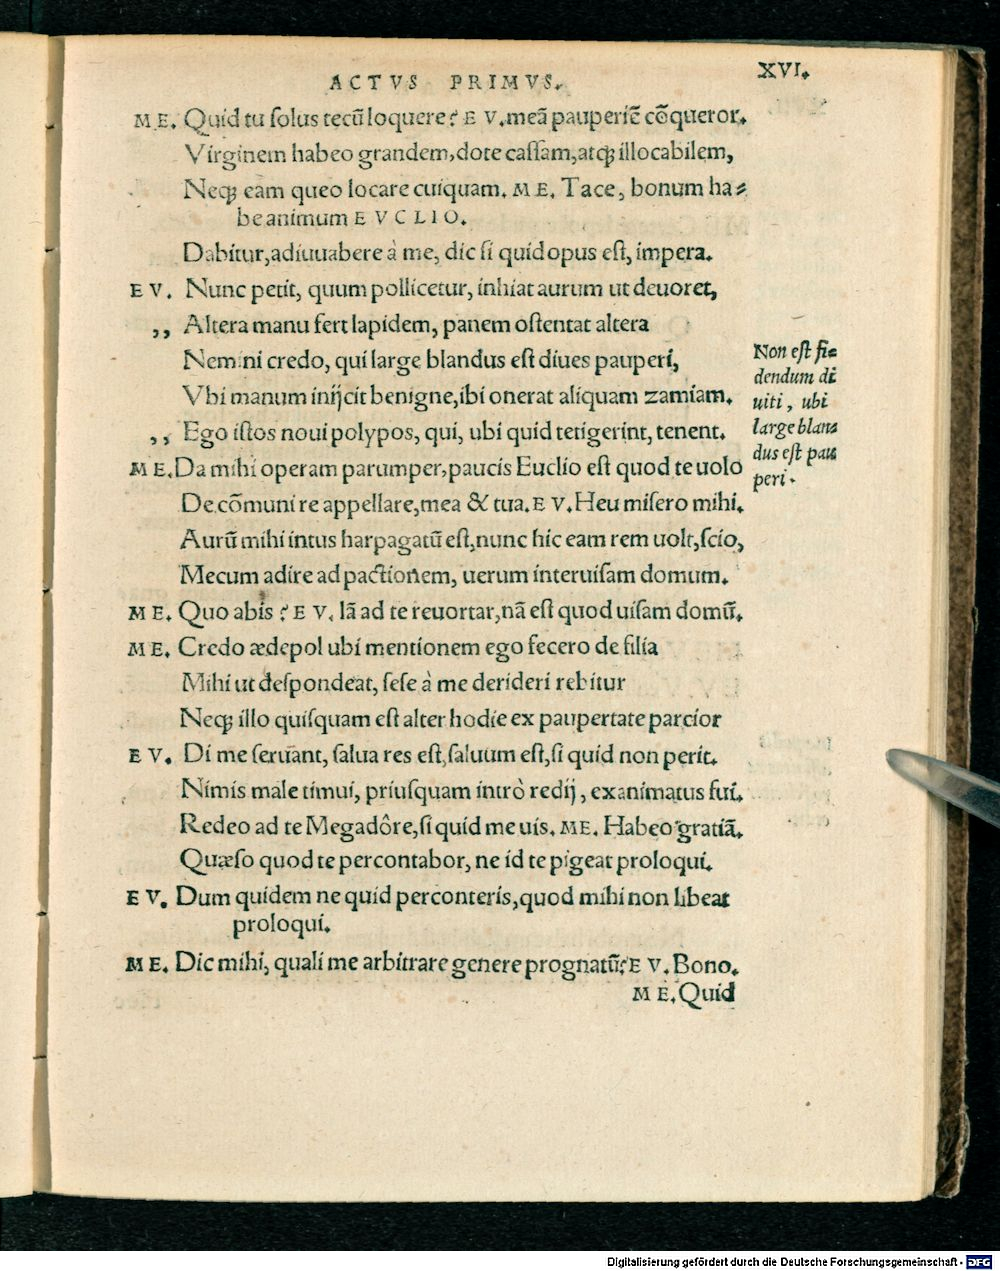 ACTVS PRIMVS. XVI.
ME. Quid tu ſolus tecũ loquere? EV. meã pauperiẽ cõqueror.
Virginem habeo grandem, dote caſſam, atq; illocabilem,
Neq; eam queo locare cuiquam. ME. Tace, bonum ha-
be animum EVCLIO.
Dabitur, adiuuabere à me, dic ſi quid opus eſt, impera.
EV. Nunc petit, quum pollicetur, inhiat aurum ut deuoret,
,, Altera manu fert lapidem, panem oſtentat altera
Nemini credo, qui large blandus eſt diues pauperi,
Vbi manum inijcit benigne, ibi onerat aliquam zamiam.
,, Ego iſtos noui polypos, qui, ubi quid tetigerint, tenent.
Non eſt fi-
dendum di
uiti, ubi
large blan
dus eſt pau
peri.
ME. Da mihi operam parumper, paucis Euclio eſt quod te uolo
De cõmuni re appellare, mea & tua. EV. Heu miſero mihi.
Aurũ mihi intus harpagatũ eſt, nunc hic eam rem uolt, ſcio,
Mecum adire ad pactionem, uerum interuiſam domum.
ME. Quo abis? EV. Iã ad te reuortar, nã eſt quod uiſam domũ.
ME. Credo ædepol ubi mentionem ego fecero de filia
Mihi ut deſpondeat, ſeſe à me derideri rebitur
Neq; illo quiſquam eſt alter hodie ex paupertate parcior
EV. Di me ſeruant, ſalua res eſt, ſaluum eſt, ſi quid non perit.
Nimis male timui, priuſquam intrò redij, exanimatus fui.
Redeo ad te Megadôre, ſi quid me uis. ME. Habeo gratiã.
Quæſo quod te percontabor, ne id te pigeat proloqui.
EV. Dum quidem ne quid perconteris, quod mihi non libeat
proloqui.
ME. Dic mihi, quali me arbitrare genere prognatũ? EV. Bono.
ME. Quid
Digitalisierung gefördert durch die Deutsche Forschungsgemeinschaft - DFG